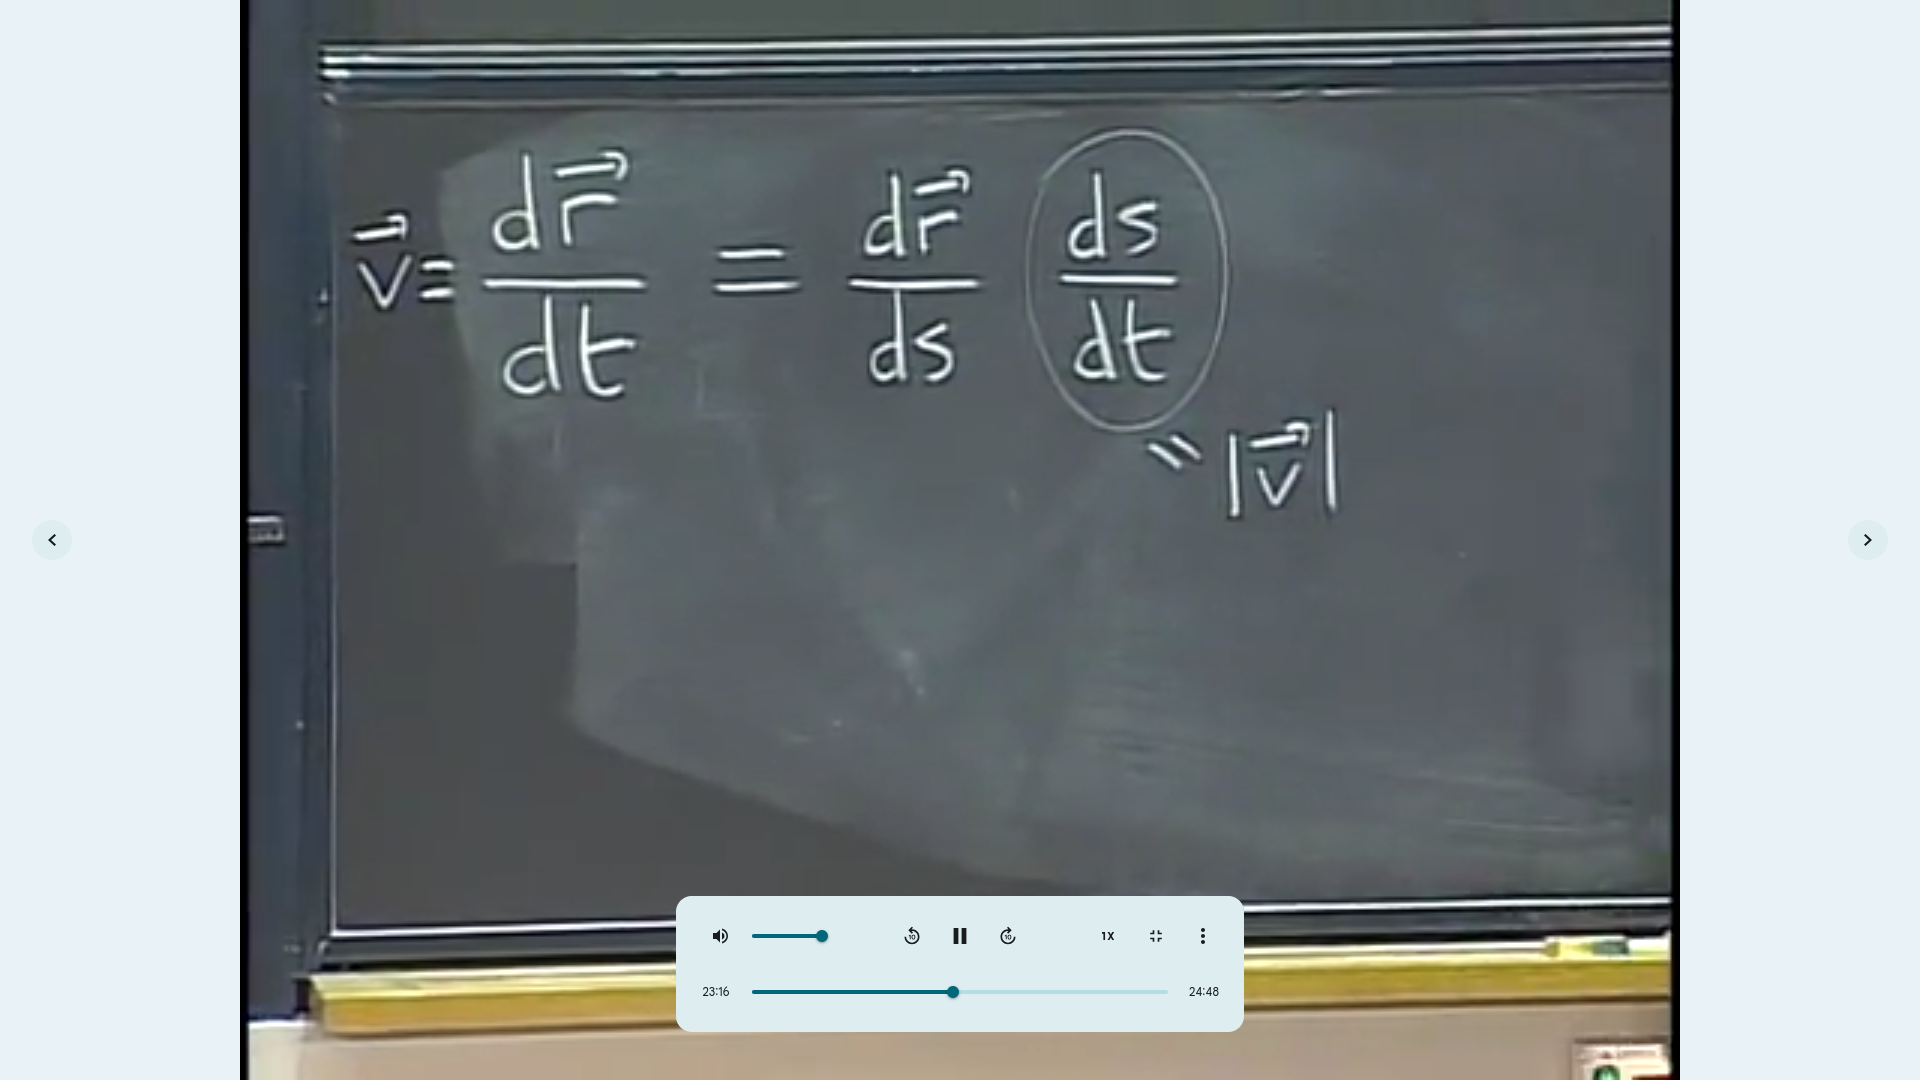 v⃗ = dr⃗/dt = dr⃗/ds ds/dt
= |v⃗|
10 10 1X
23:16 24:48